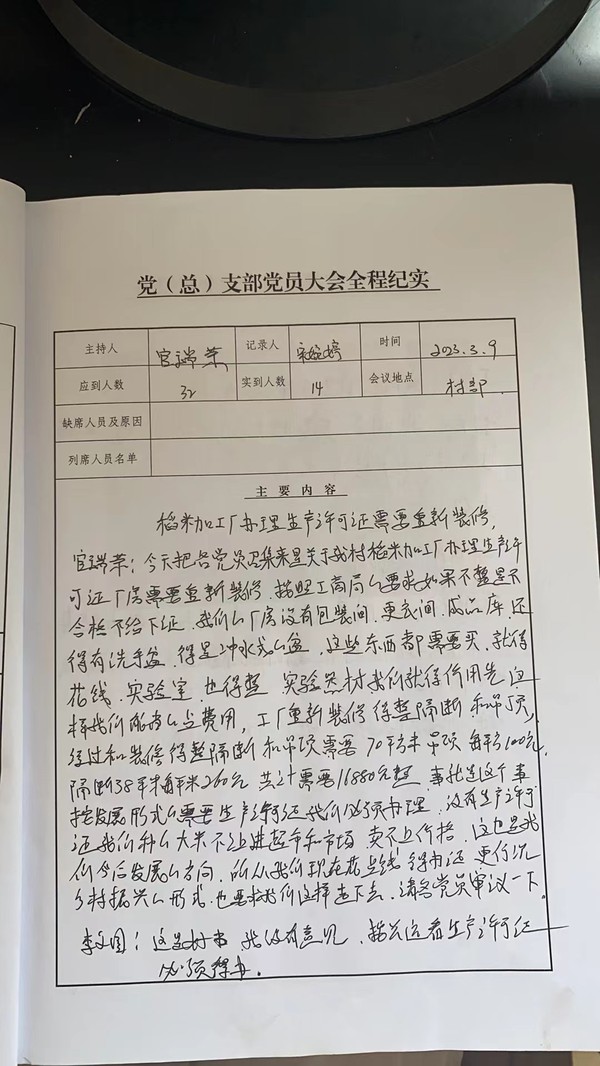 党（总）支部党员大会全程纪实
主持人 官瑞荣 记录人 时间 2023.3.9
应到人数 32 实到人数 14 会议地点 村部
缺席人员及原因
列席人员名单
主要内容
稻米加工厂办理生产许可证需要重新装修，
官瑞荣：今天把各党员召集来是关于我村稻米加工厂办理生产许
可证厂房需要重新装修，按照工商局么要求如果不整是不
合格不给下证，我们么厂房没有包装间，更衣间，成品库，还
得有洗手盆，得是冲水式么盆，这些东西都需要买，就得
花钱，实验室也得整，实验器材我们就得借用先，这
样我们能省么点费用，工厂重新装修得整隔断和吊顶，
经过和装修得整隔断和吊顶需要70平方米吊顶每平方100元，
隔断38平米每平米260元 共计需要16880元整，事就是这个事
按发展形式么需要生产许可证我们必须办理，没有生产许可
证我们种么大米不让进超市和市场 卖不上价格，这也是我
们今后发展么方向，所以我们现在花点钱得办证 更何况
乡村振兴么形式，也要求我们这样走下去，请各党员审议一下，
李文国：这是好事 我没有意见，按长远看生产许可证
必须得办。